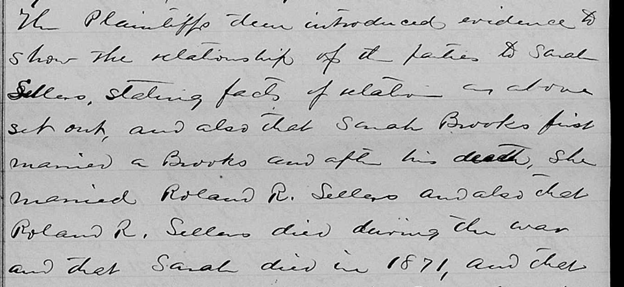 The Plaintiffs then introduced evidence to
show the relationship of th parties to Sarah
Sellers, stating facts of relation as above
set out, and also that Sarah Brooks first
married a Brooks and after his death, she
married Roland R. Sellers and also that
Roland R. Sellers died during the war
and that Sarah died in 1871, and that